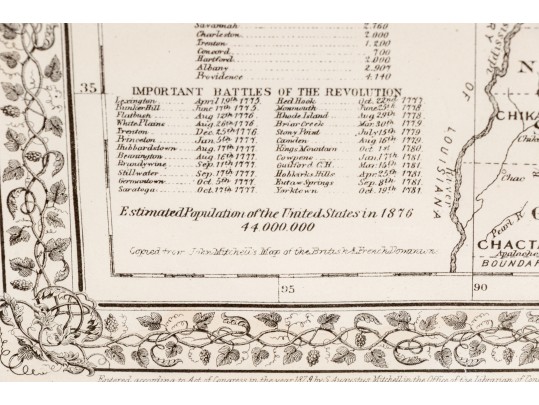 Savannah 2.760
Charleston 2.000
Trenton 1.200
Concord 700
Hartford 2.000
Albany 2.907
Providence 4.140
35
IMPORTANT BATTLES OF THE REVOLUTION
Lexington April 19th 1775. Red Hook Oct. 22nd 1777
Bunder Hill June 17th 1775. Monmouth June 28th 1778
Flatbush Aug 12th 1776 Rhode Island Aug 29th 1778
White Plains Aug 26th 1776 Briar Creek Mar 30th 1779
Trenton Dec. 25th 1776 Stony Point July 15th 1779
Princeton Jan. 5th 1777. Camden Aug 16th 1779
Hubbardstown Aug. 17th 1777. Kings Mountain Oct 1st 1780
Bennington Aug 16th 1777. Cowpens Jan. 17th 1781
Brandywine Sep. 11th 1777. Guilford C.H. Mar 15th 1781
Stillwater Sep. 17th 1777. Hobkirks Hills Apr. 25th 1781
Germantown Oct 5th 1777. Eutaw Springs Sep. 8th 1781
Saratoga Oct. 17th 1777. Yorktown Oct. 19th 1781
Estimated Population of the United States in 1876
44.000.000
Copied from John Mitchell's Map of the British & French Dominion
95
90
OF LOUISIANA
MISSISSIPPI
CHIKA
Chikas
Chac
Pearl R.
CHACTA
Apalache
BOUNDAR
Entered according to Act of Congress in the year 1878 by S. Augustus Mitchell in the Office of the Librarian of Con